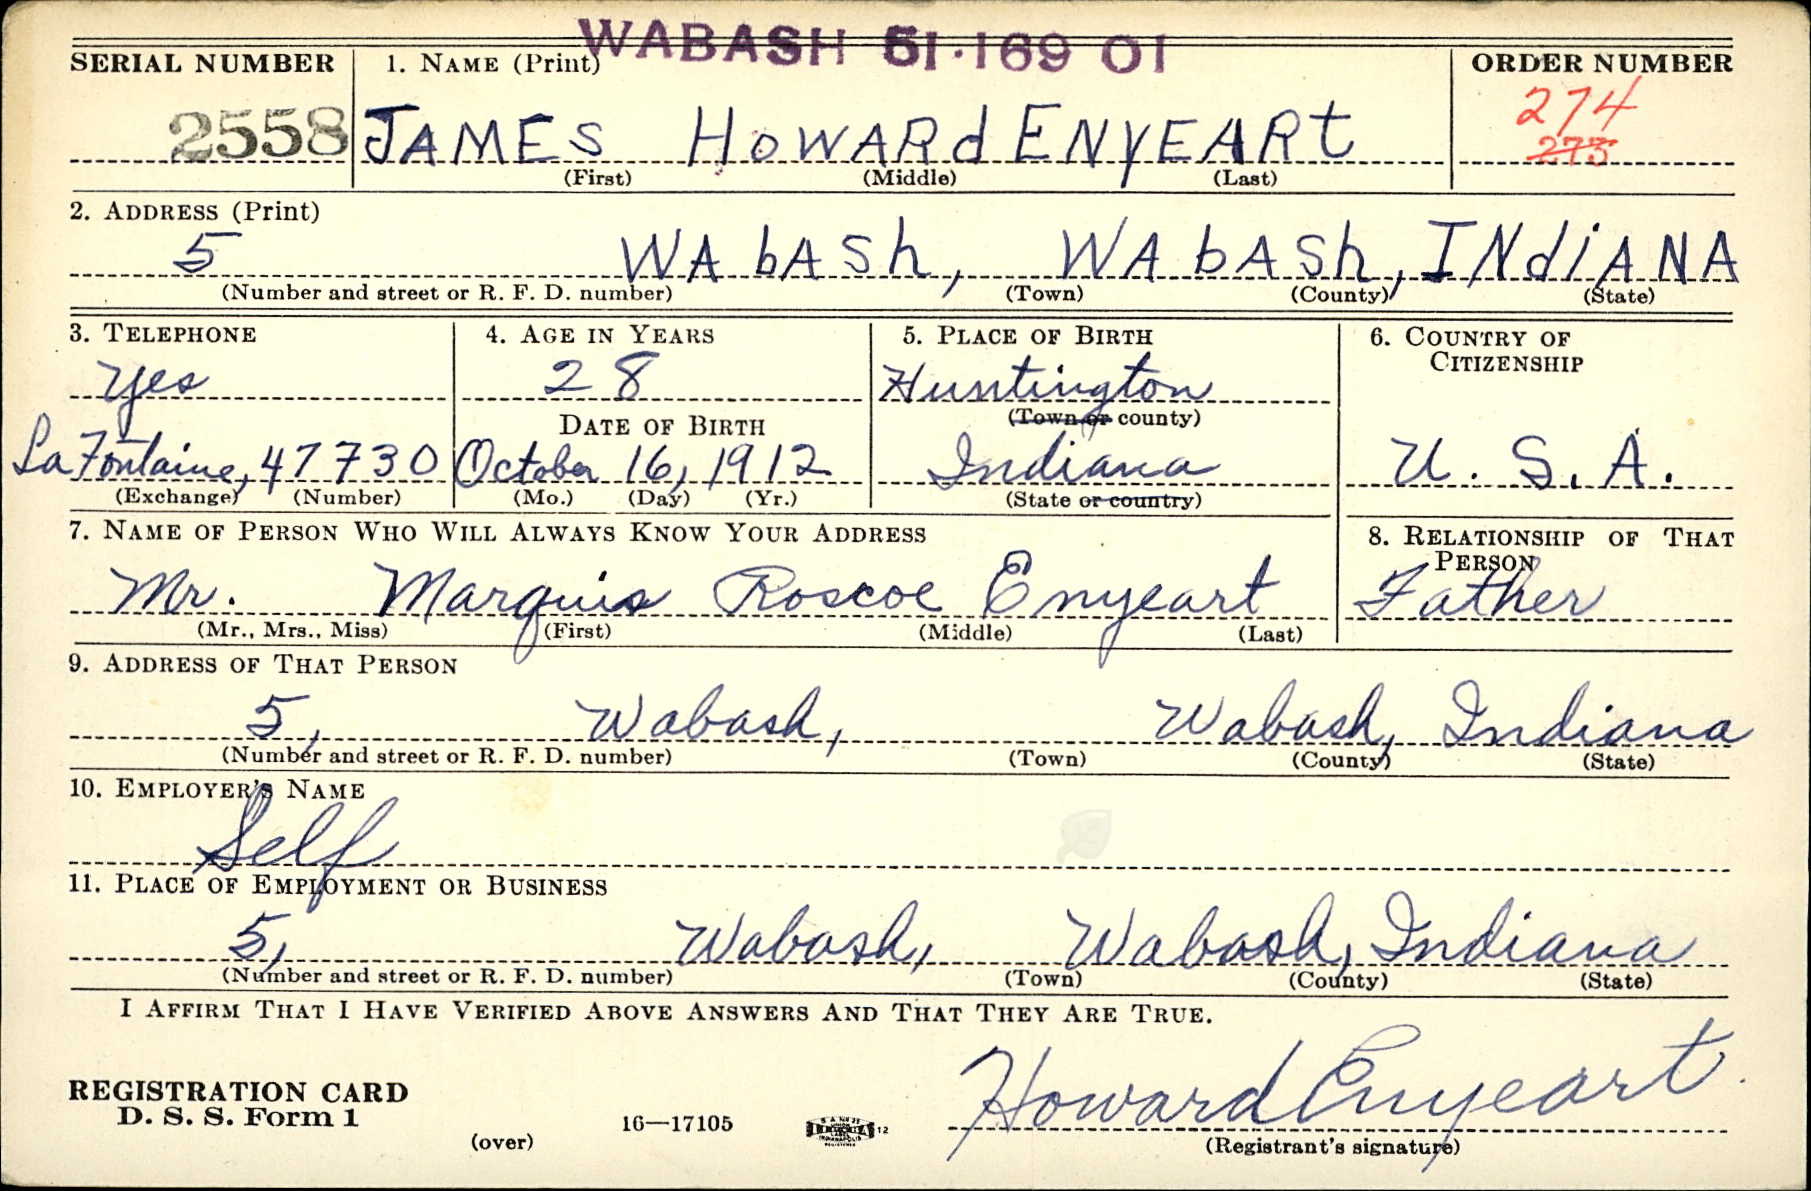 WABASH 51·169 01
SERIAL NUMBER 1. NAME (Print) ORDER NUMBER
274
2558 JAMES HOWARD ENYEART 273
(First) (Middle) (Last)
2. ADDRESS (Print)
5 WAbASh, WAbASh, INdiANA
(Number and street or R. F. D. number) (Town) (County) (State)
3. TELEPHONE 4. AGE IN YEARS 5. PLACE OF BIRTH 6. COUNTRY OF CITIZENSHIP
Yes 28 Huntington
DATE OF BIRTH (Town or county)
La Fontaine, 47730 October 16, 1912 Indiana U. S. A.
(Exchange) (Number) (Mo.) (Day) (Yr.) (State or country)
7. NAME OF PERSON WHO WILL ALWAYS KNOW YOUR ADDRESS 8. RELATIONSHIP OF THAT PERSON
Mr. Marquis Roscoe Enyeart Father
(Mr., Mrs., Miss) (First) (Middle) (Last)
9. ADDRESS OF THAT PERSON
5, Wabash, Wabash, Indiana
(Number and street or R. F. D. number) (Town) (County) (State)
10. EMPLOYER'S NAME
Self
11. PLACE OF EMPLOYMENT OR BUSINESS
5, Wabash, Wabash, Indiana
(Number and street or R. F. D. number) (Town) (County) (State)
I AFFIRM THAT I HAVE VERIFIED ABOVE ANSWERS AND THAT THEY ARE TRUE.
Howard Enyeart
REGISTRATION CARD
D. S. S. Form 1 16—17105 12
(over) (Registrant's signature)